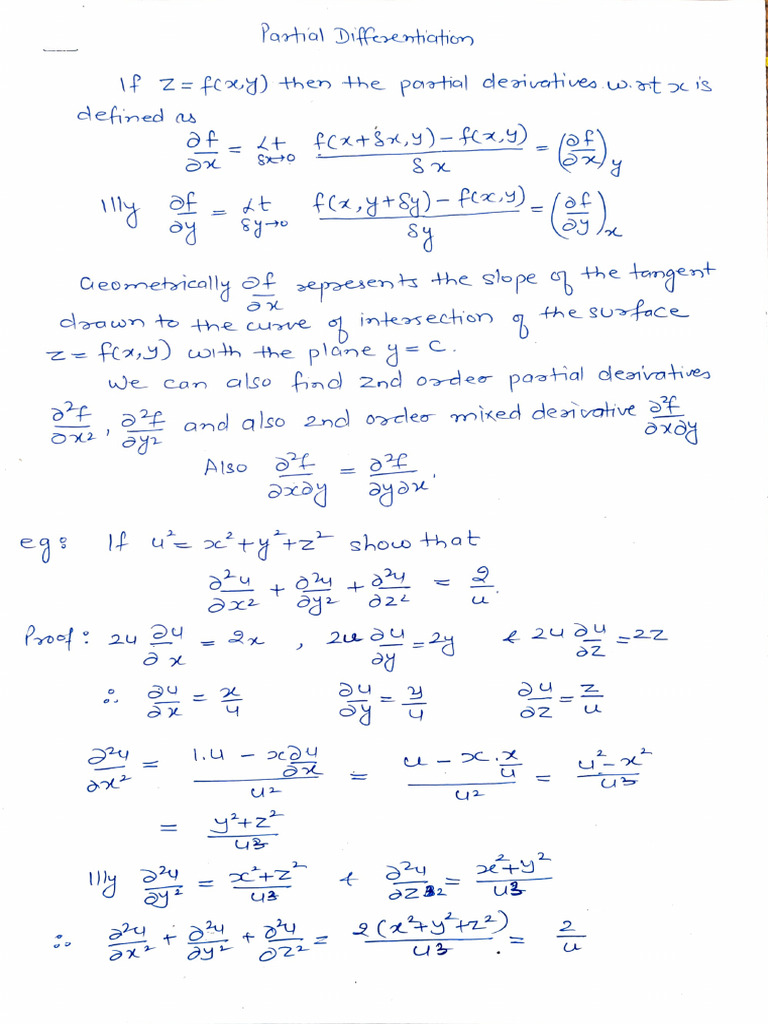 Partial Differentiation
If z = f(x,y) then the partial derivatives w.r.t x is
defined as
∂f/∂x = Lt δx→0 (f(x+δx,y) − f(x,y))/δx = (∂f/∂x)y
Illly ∂f/∂y = Lt δy→0 (f(x,y+δy) − f(x,y))/δy = (∂f/∂y)x
Geometrically ∂f/∂x represents the slope of the tangent
drawn to the curve of intersection of the surface
z = f(x,y) with the plane y = c.
We can also find 2nd order partial derivatives
∂²f/∂x², ∂²f/∂y² and also 2nd order mixed derivative ∂²f/∂x∂y
Also ∂²f/∂x∂y = ∂²f/∂y∂x.
eg: If u² = x²+y²+z² show that
∂²u/∂x² + ∂²u/∂y² + ∂²u/∂z² = 2/u.
Proof: 2u ∂u/∂x = 2x, 2u ∂u/∂y = 2y & 2u ∂u/∂z = 2z
∴ ∂u/∂x = x/u ∂u/∂y = y/u ∂u/∂z = z/u
∂²u/∂x² = (1.u − x ∂u/∂x)/u² = (u − x.x/u)/u² = (u²−x²)/u³
= (y²+z²)/u³
Illly ∂²u/∂y² = (x²+z²)/u³ & ∂²u/∂z² = (x²+y²)/u³
∴ ∂²u/∂x² + ∂²u/∂y² + ∂²u/∂z² = 2(x²+y²+z²)/u³ = 2/u